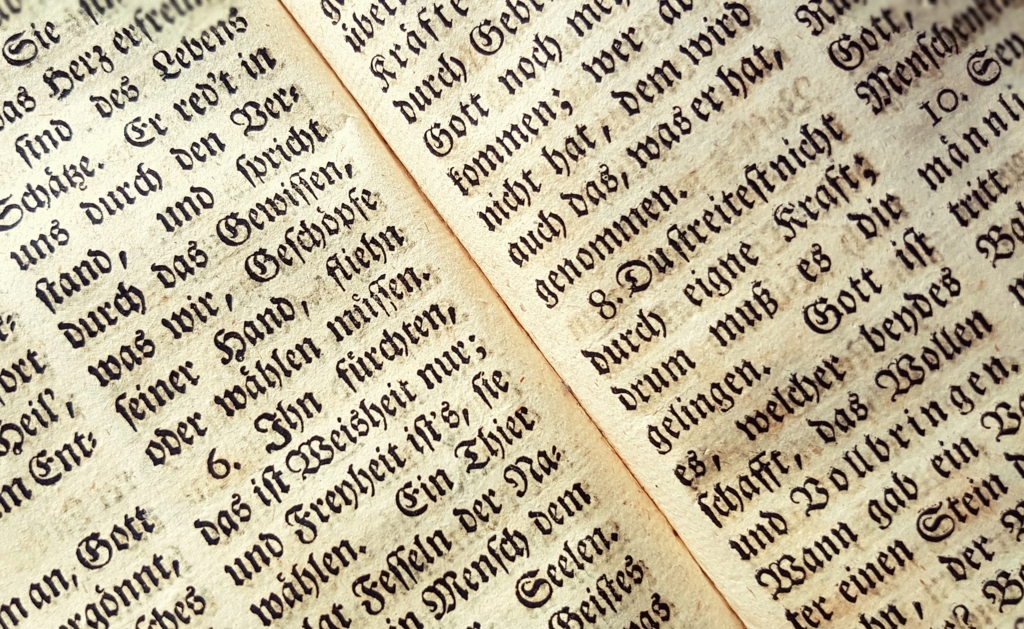 Sie
das Herz erfreun
sind des Lebens
Schätze. Er red't in
uns durch den Ver-
stand, und spricht
durch das Gewissen,
was wir, Geschöpfe
seiner Hand, fliehn
oder wählen müssen.
6. Ihn fürchten,
das ist Weisheit nur;
und Freyheit ist's, sie
wählen. Ein Thier
Fesseln der Na-
Mensch dem
Seelen.
Geistes
Heil,
Ent-
an, Gott
über
Kräfte
durch Gebe
Gott noch meh
kommen; wer ab
nicht hat, dem wird
auch das, was er hat,
genommen.
8. Du streitest nicht
durch eigne Kraft;
drum muß es die
gelingen. Gott ist
es, welcher beydes
schafft, das Wollen
und Vollbringen.
Wann gab ein
ter einen Stein
der
Gott,
Menschen
10.
männli
tritt